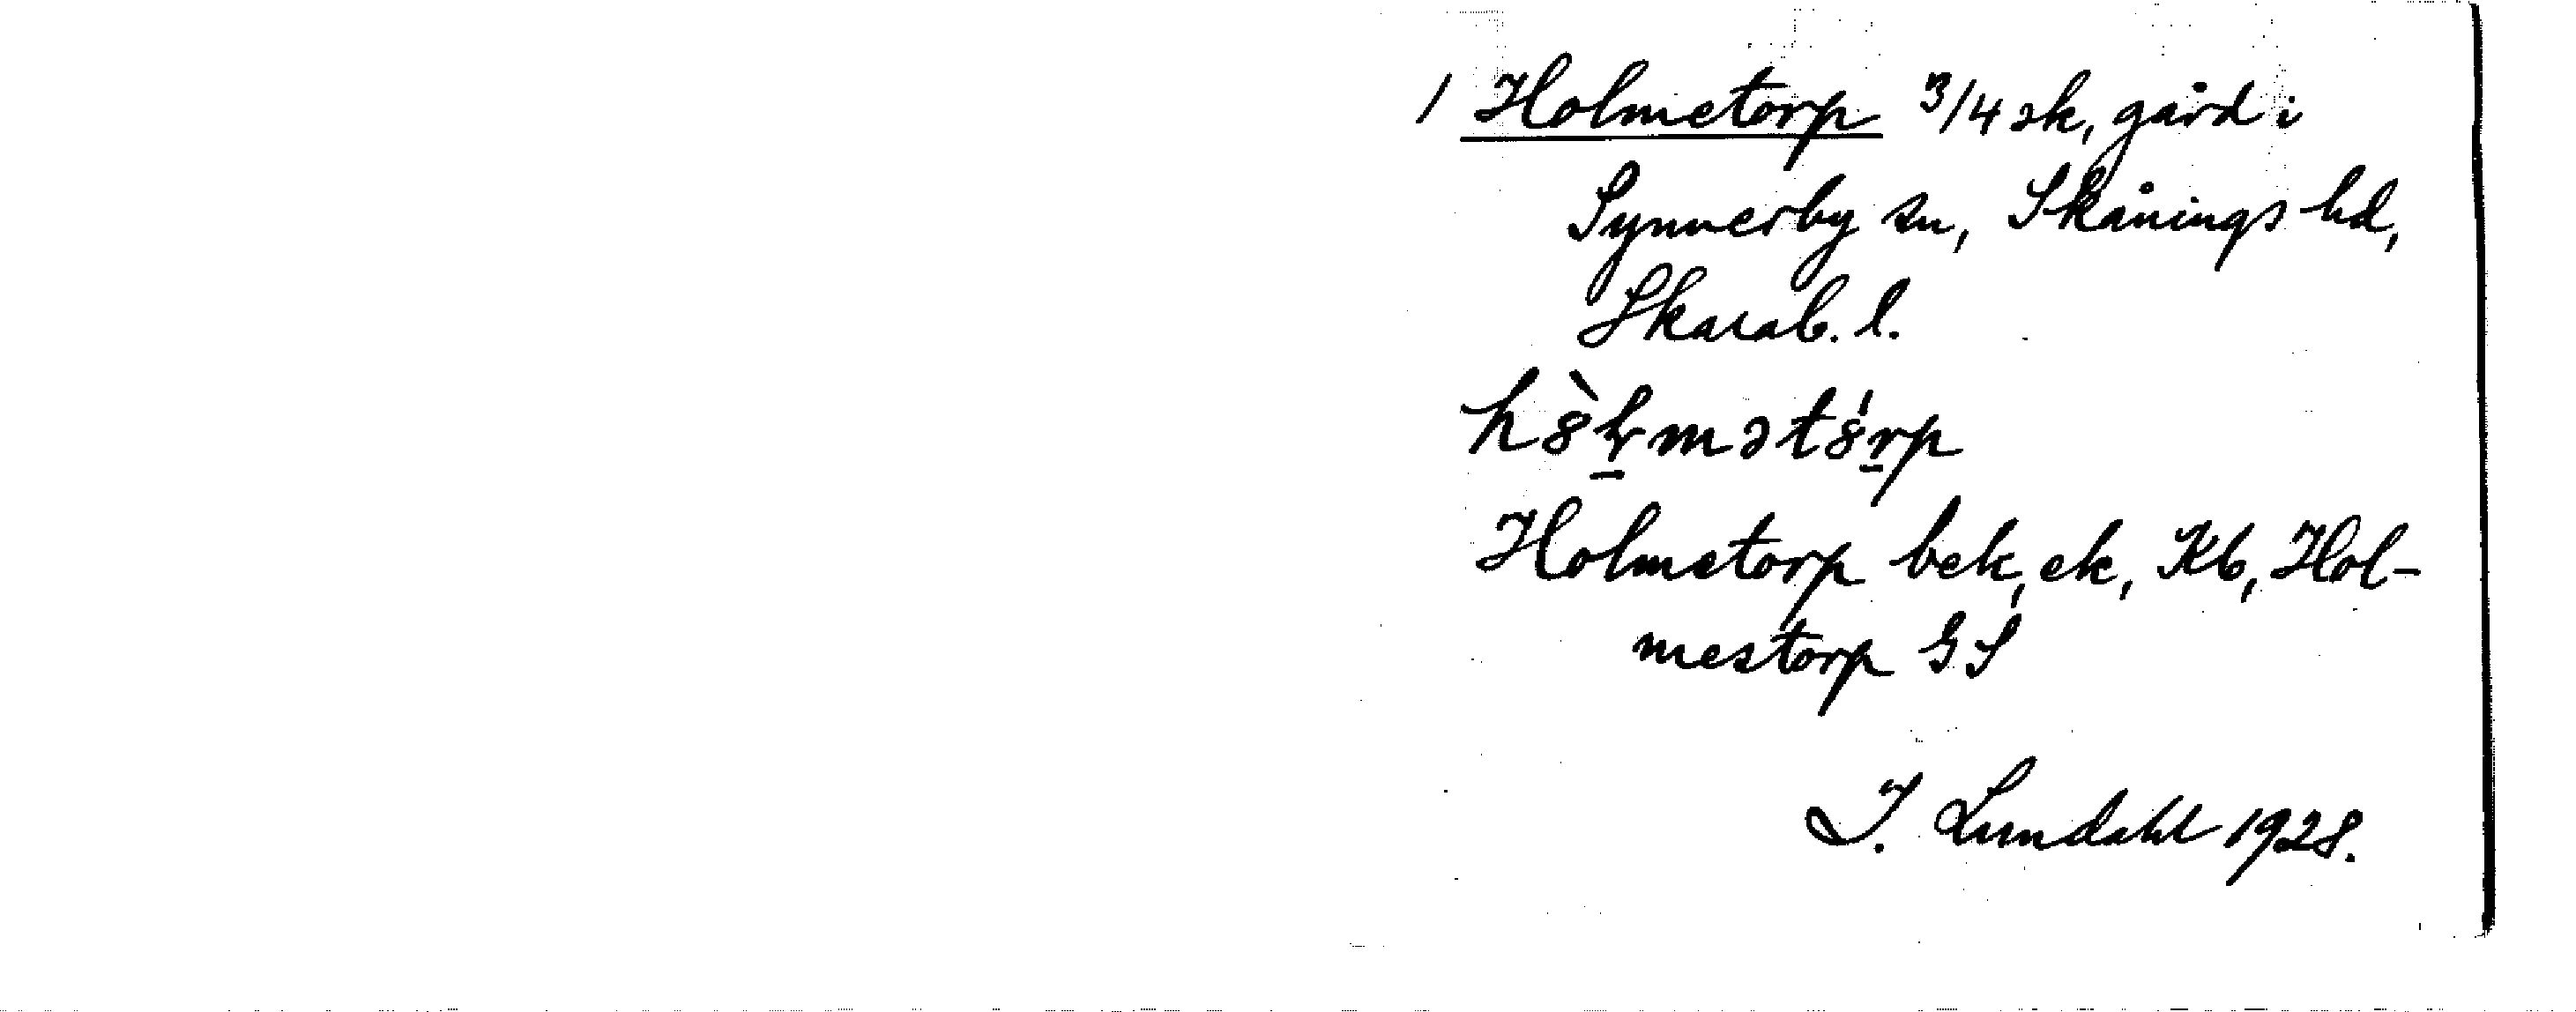 1 Holmetorp 3/4 sk, gård i
Synnerby sn, Skånings hd,
Skarab. l.
Holmetorp bek, ek, Kb, Hol-
mestorp GS
I. Lundahl 1928.